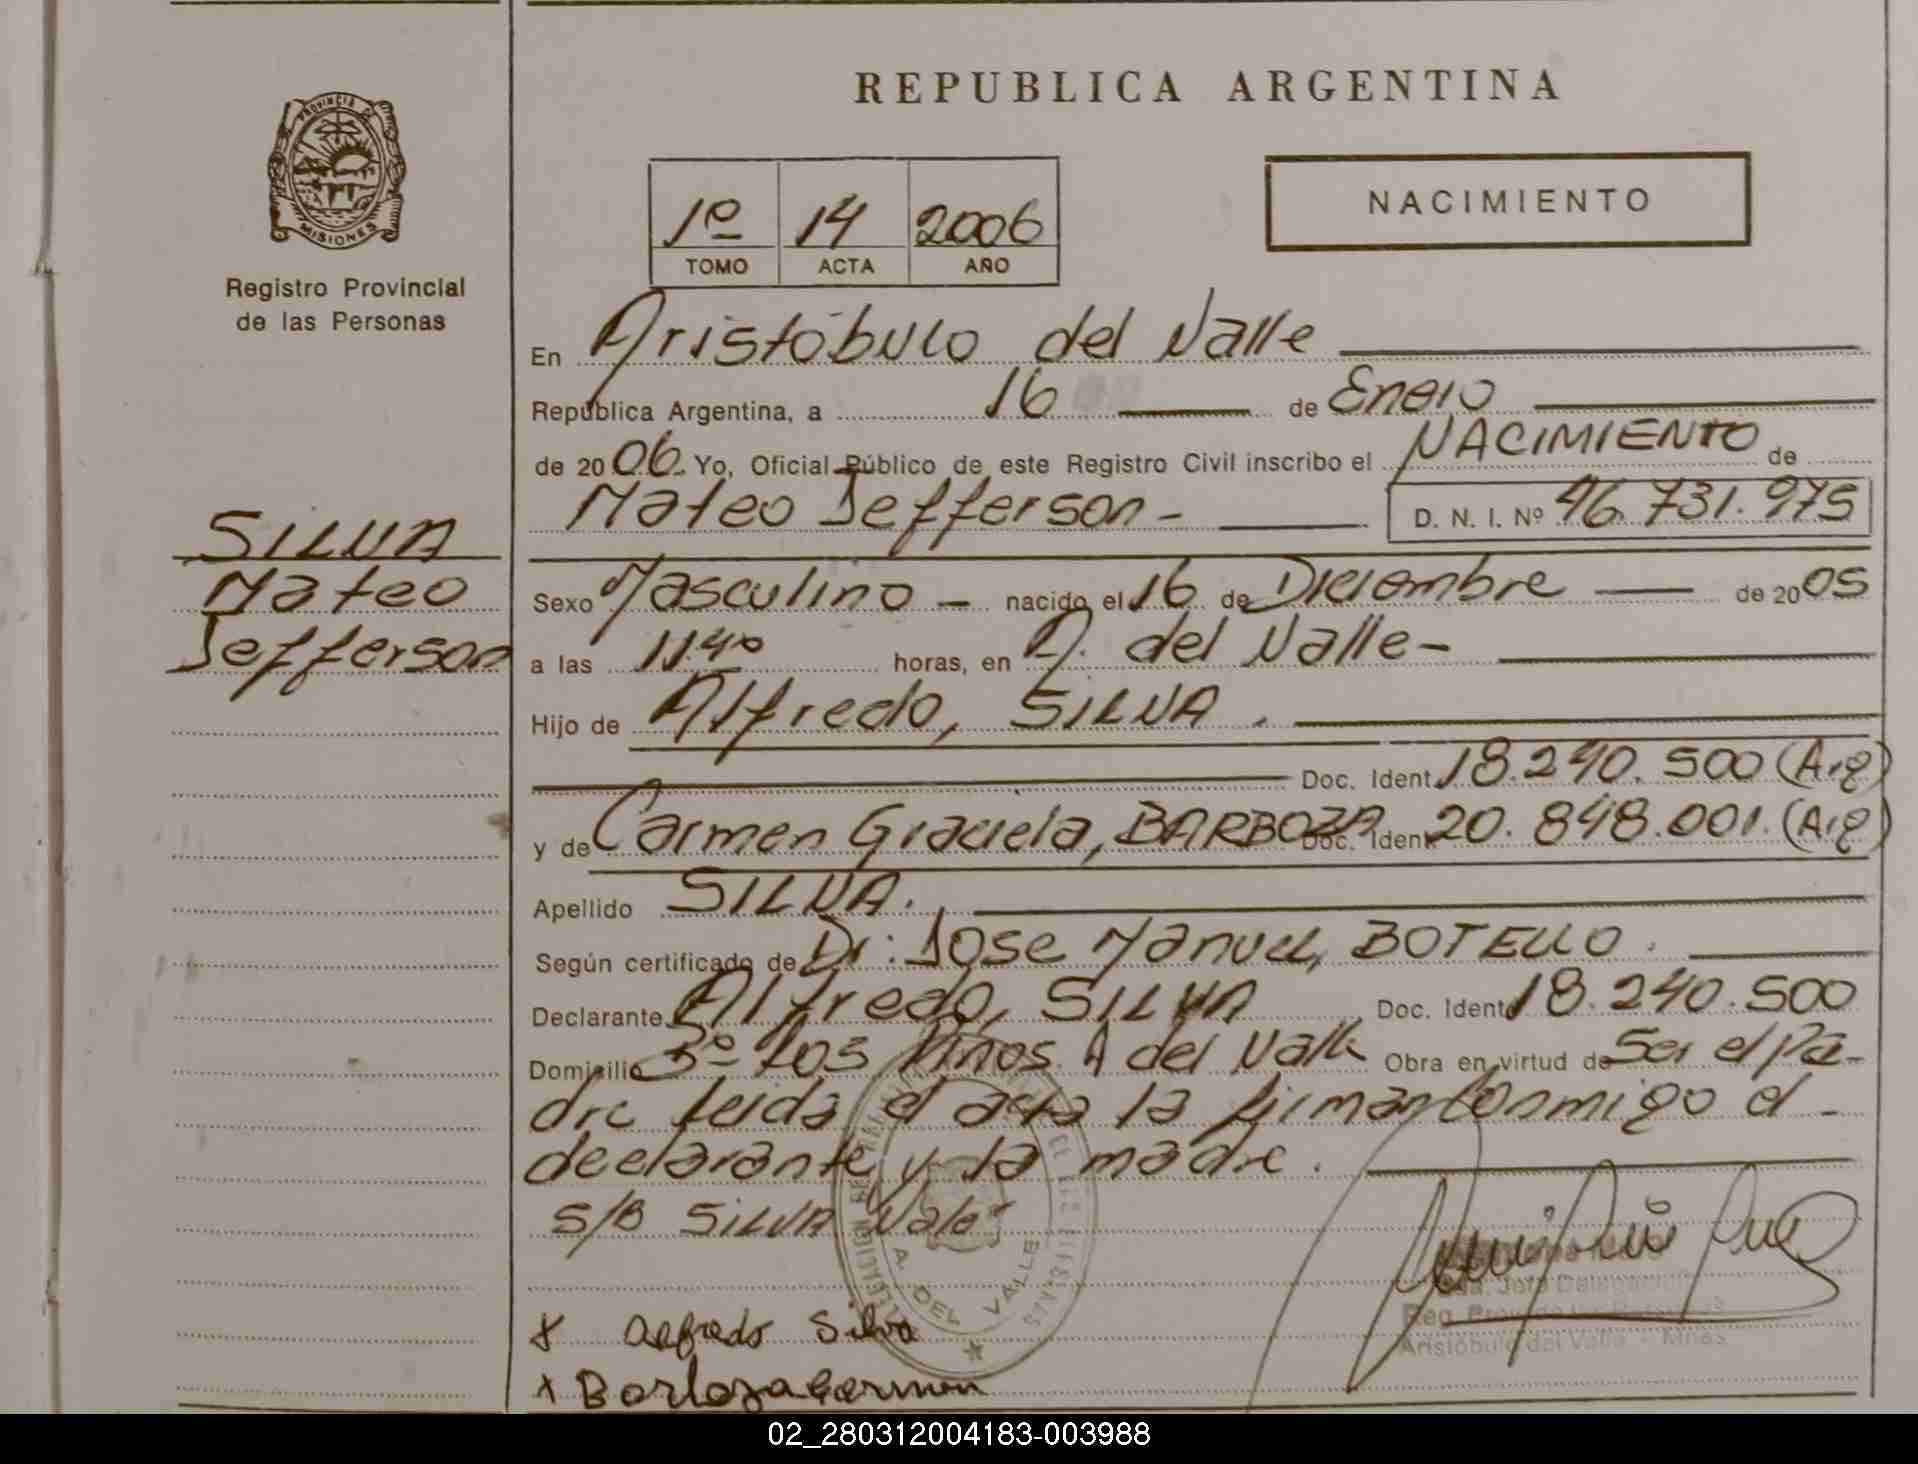 REPUBLICA ARGENTINA
PROVINCIA DE
MISIONES
Registro Provincial
de las Personas
1º 14 2006
TOMO ACTA AÑO
NACIMIENTO
SILVA
Mateo
Jefferson
En Aristóbulo del Valle
República Argentina, a 16 de Enero
de 2006. Yo, Oficial Público de este Registro Civil inscribo el NACIMIENTO de
Mateo Jefferson - D. N. I. Nº 46.731.975
Sexo Masculino - nacido el 16 de Diciembre de 2005
a las 11:40 horas, en A. del Valle -
Hijo de Alfredo, SILVA.
Doc. Ident. 18.240.500 (Arg)
y de Carmen Graciela, BARBOZA Doc. Ident. 20.848.001. (Arg)
Apellido SILVA.
Según certificado de Dr: Jose Manuel, BOTELLO.
Declarante Alfredo, SILVA Doc. Ident. 18.240.500
Domicilio Bº Los Pinos A del Valle Obra en virtud de Ser el Pa-
dre leida el acta la firman conmigo el -
declarante y la madre.
S/B SILVA Vale-
A. DEL VALLE
Jefa Delegación
Reg. Prov. de las Personas
Aristóbulo del Valle - Mnes
x Alfredo Silva
x Barboza Carmen
02_280312004183-003988